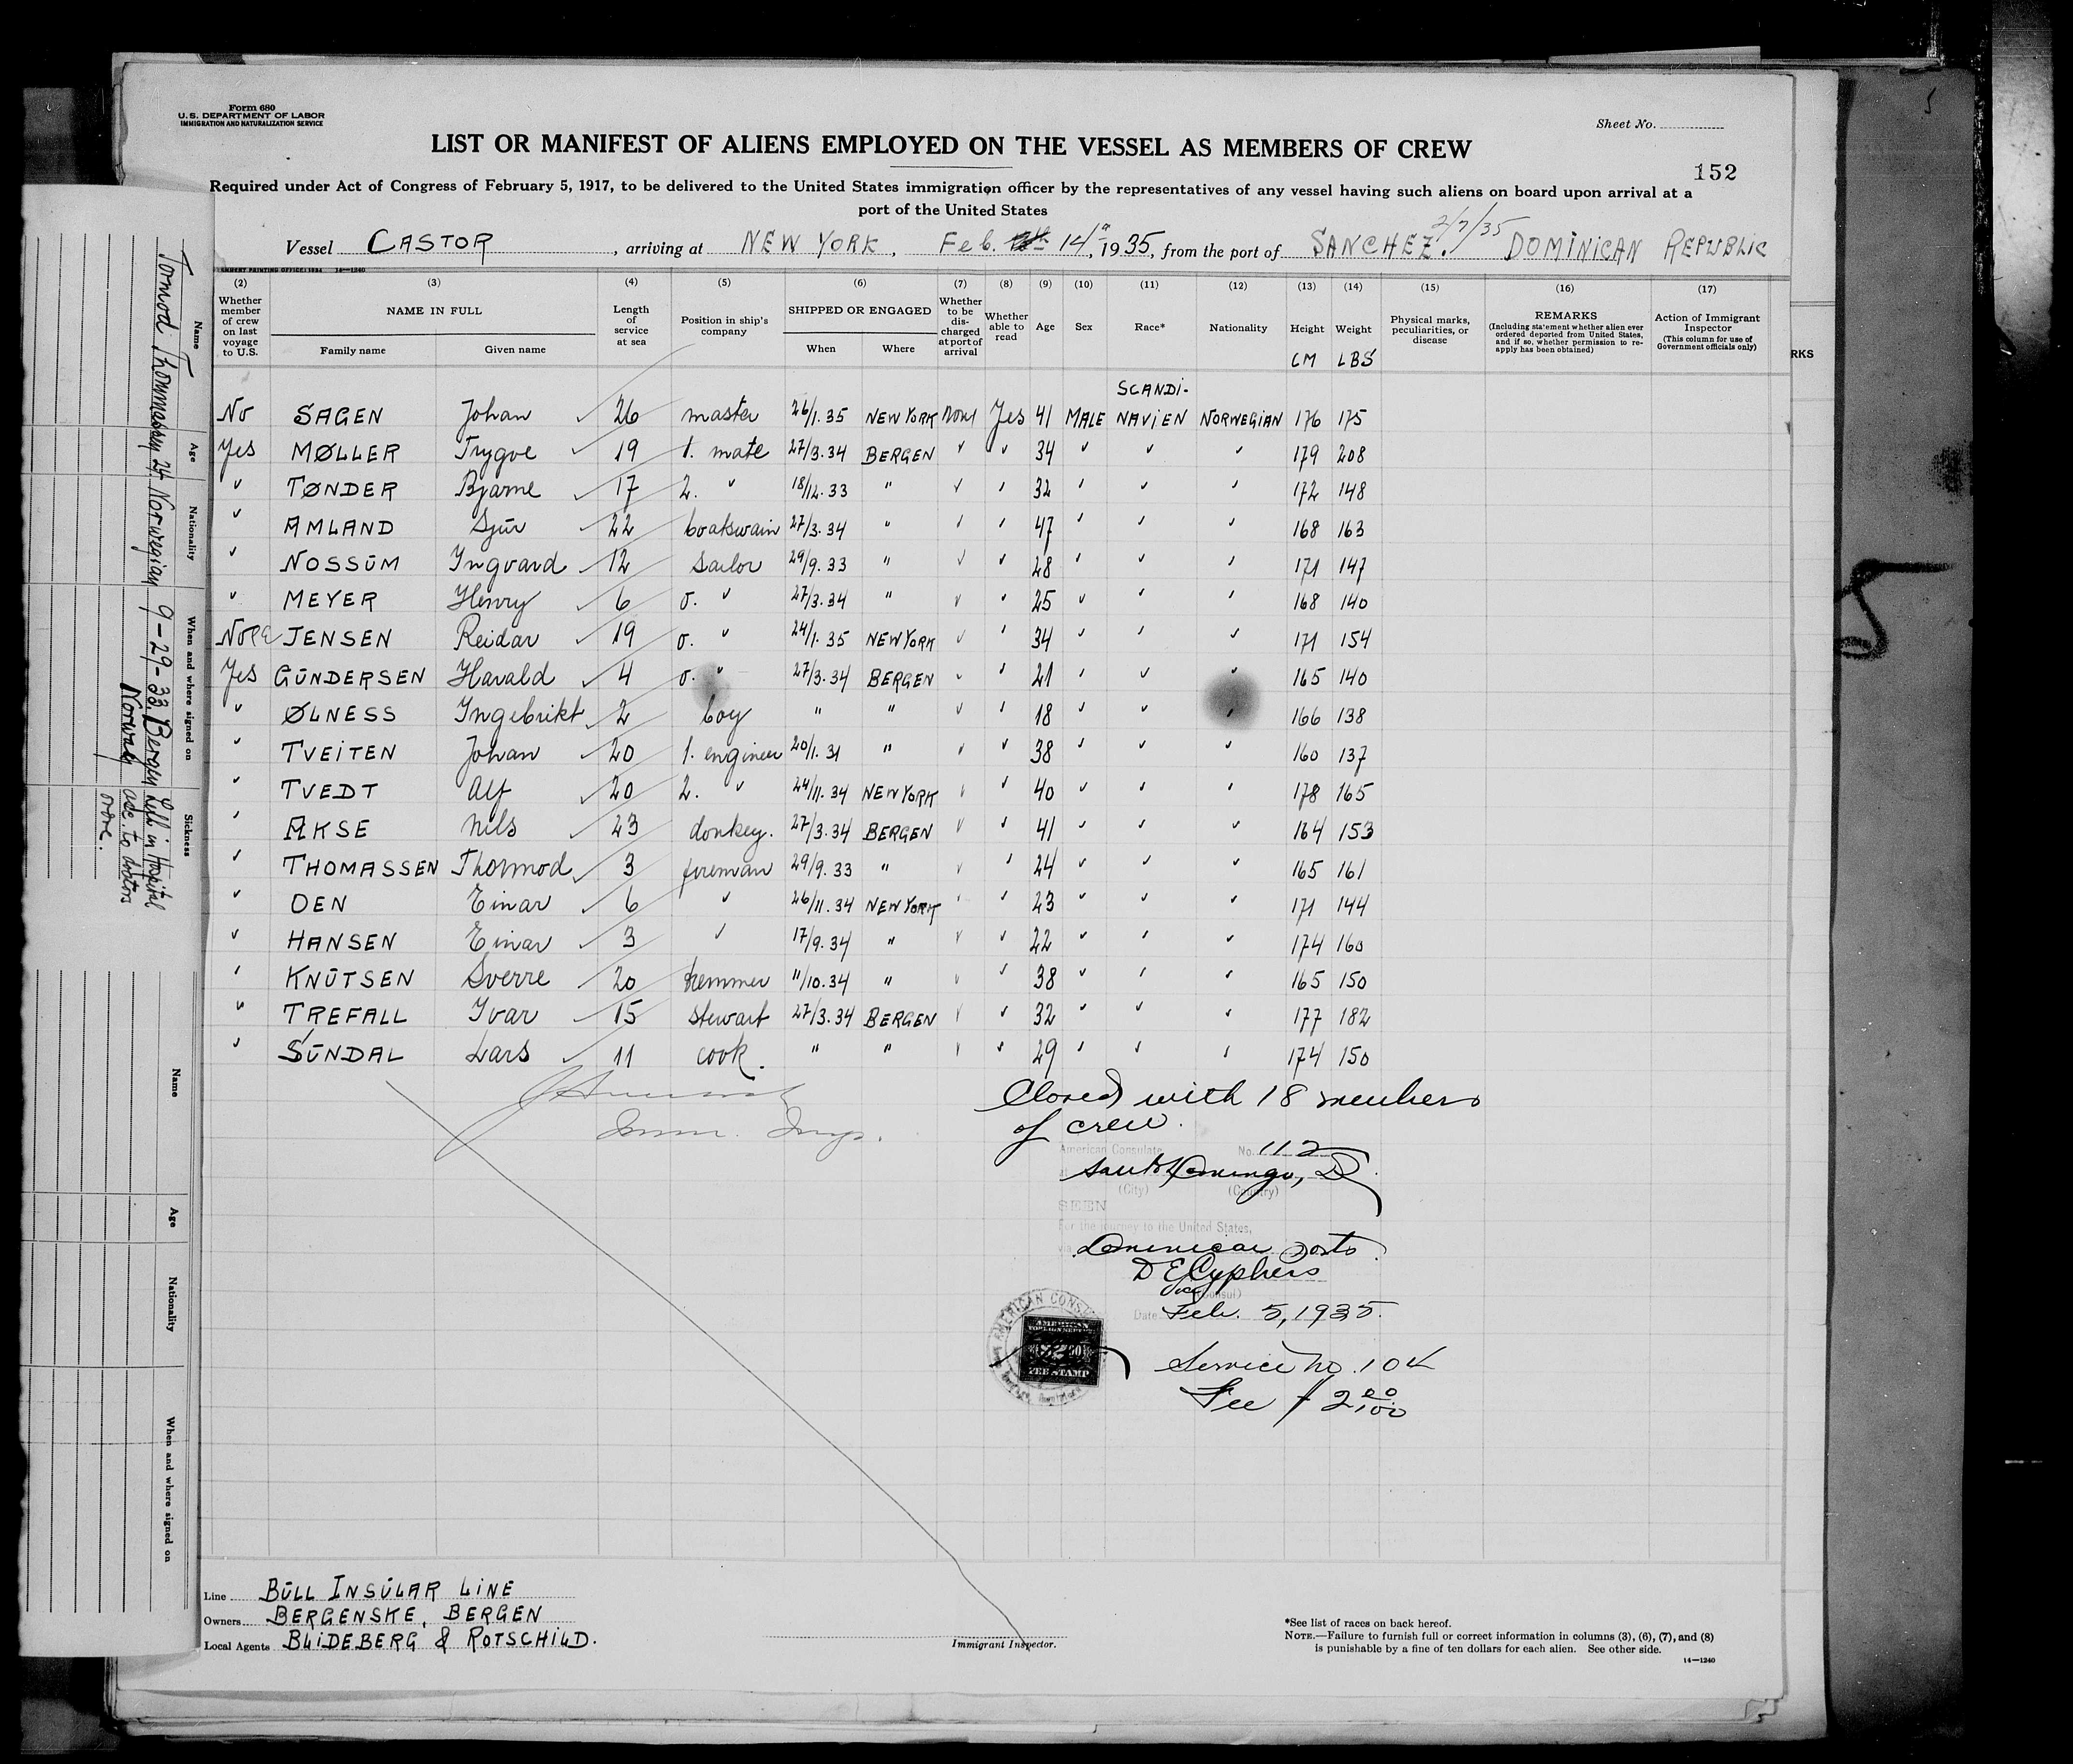 Form 680
U.S. DEPARTMENT OF LABOR
IMMIGRATION AND NATURALIZATION SERVICE
Sheet No.
LIST OR MANIFEST OF ALIENS EMPLOYED ON THE VESSEL AS MEMBERS OF CREW
152
Required under Act of Congress of February 5, 1917, to be delivered to the United States immigration officer by the representatives of any vessel having such aliens on board upon arrival at a
port of the United States
2/7/35
Vessel CASTOR, arriving at NEW YORK, Feb. 14th, 1935, from the port of SANCHEZ. DOMINICAN REPUBLIC
14-1240
(2) (3) (4) (5) (6) (7) (8) (9) (10) (11) (12) (13) (14) (15) (16) (17)
Whether member of crew on last voyage to U.S. NAME IN FULL Length of service at sea Position in ship's company SHIPPED OR ENGAGED Whether to be discharged at port of arrival Whether able to read Age Sex Race* Nationality Height Weight Physical marks, peculiarities, or disease REMARKS (Including statement whether alien ever ordered deported from United States, and if so, whether permission to reapply has been obtained) Action of Immigrant Inspector (This column for use of Government officials only)
Family name Given name When Where CM LBS
RKS
SCANDI-
No SAGEN Johan 26 master 26/1.35 NEW YORK None Yes 41 MALE NAVIEN NORWEGIAN 176 175
Yes MØLLER Trygve 19 1. mate 27/3.34 BERGEN " " 34 " " " 179 208
" TØNDER Bjarne 17 2. " 18/12.33 " " " 32 " " " 172 148
" AMLAND Sjur 22 boatswain 27/3.34 " " " 47 " " " 168 163
" NOSSUM Ingvard 12 sailor 29/9.33 " " " 28 " " " 171 147
" MEYER Henry 6 o. " 27/3.34 " " " 25 " " " 168 140
JENSEN Reidar 19 o. " 24/1.35 NEW YORK " " 34 " " " 171 154
Yes GUNDERSEN Harald 4 o. " 27/3.34 BERGEN " " 21 " " " 165 140
" ØLNESS Ingebrikt 2 boy " " " " 18 " " " 166 138
" TVEITEN Johan 20 1. engineer 20/1.31 " " " 38 " " " 160 137
" TVEDT Alf 20 2. " 24/11.34 NEW YORK " " 40 " " " 178 165
" AKSE Nils 23 donkey. 27/3.34 BERGEN " " 41 " " " 164 153
" THOMASSEN Thormod 3 fireman 29/9.33 " " " 24 " " " 165 161
" OEN Einar 6 " 26/11.34 NEW YORK " " 23 " " " 171 144
" HANSEN Einar 3 " 17/9.34 " " " 22 " " " 174 160
" KNUTSEN Sverre 20 11/10.34 " " " 38 " " " 165 150
" TREFALL Ivar 15 stewart 27/3.34 BERGEN " " 32 " " " 177 182
" SUNDAL Lars 11 cook. " " " " 29 " " " 174 150
Closed with 18 members
of crew.
Imm. Insp.
American Consulate No. 112
Santo Domingo, D
(City) (Country)
SEEN
For the journey to the United States,
via Dominican Ports
D E Cyphers
Vice (Consul)
Date Feb. 5, 1935.
AMERICAN CONSU
AMERICAN
FOREIGN SERVICE
FEE STAMP
Service no. 104
Fee $ 2 00/100
Line BULL INSULAR LINE
Owners BERGENSKE, BERGEN
Local Agents BLIDEBERG & ROTSCHILD.
Immigrant Inspector.
*See list of races on back hereof.
NOTE.—Failure to furnish full or correct information in columns (3), (6), (7), and (8)
is punishable by a fine of ten dollars for each alien. See other side.
14—1240
Name Age Nationality When and where signed on Sickness
Tormod Thommassen 24 Norwegian 9-29-33. Bergen Left in Hospital
Norway acc. to doctors
ordre.
Name Age Nationality When and where signed on